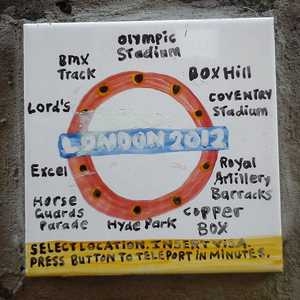 OLYMPIC
Stadium
BMX
Track
BOX Hill
COVENTRY
Stadium
Lord's
LONDON 2012
Excel
Royal
Artillery
Barracks
Horse
Guards
Parade
Hyde Park
COPPER
BOX
SELECT LOCATION. INSERT VISA.
PRESS BUTTON TO TELEPORT IN MINUTES.